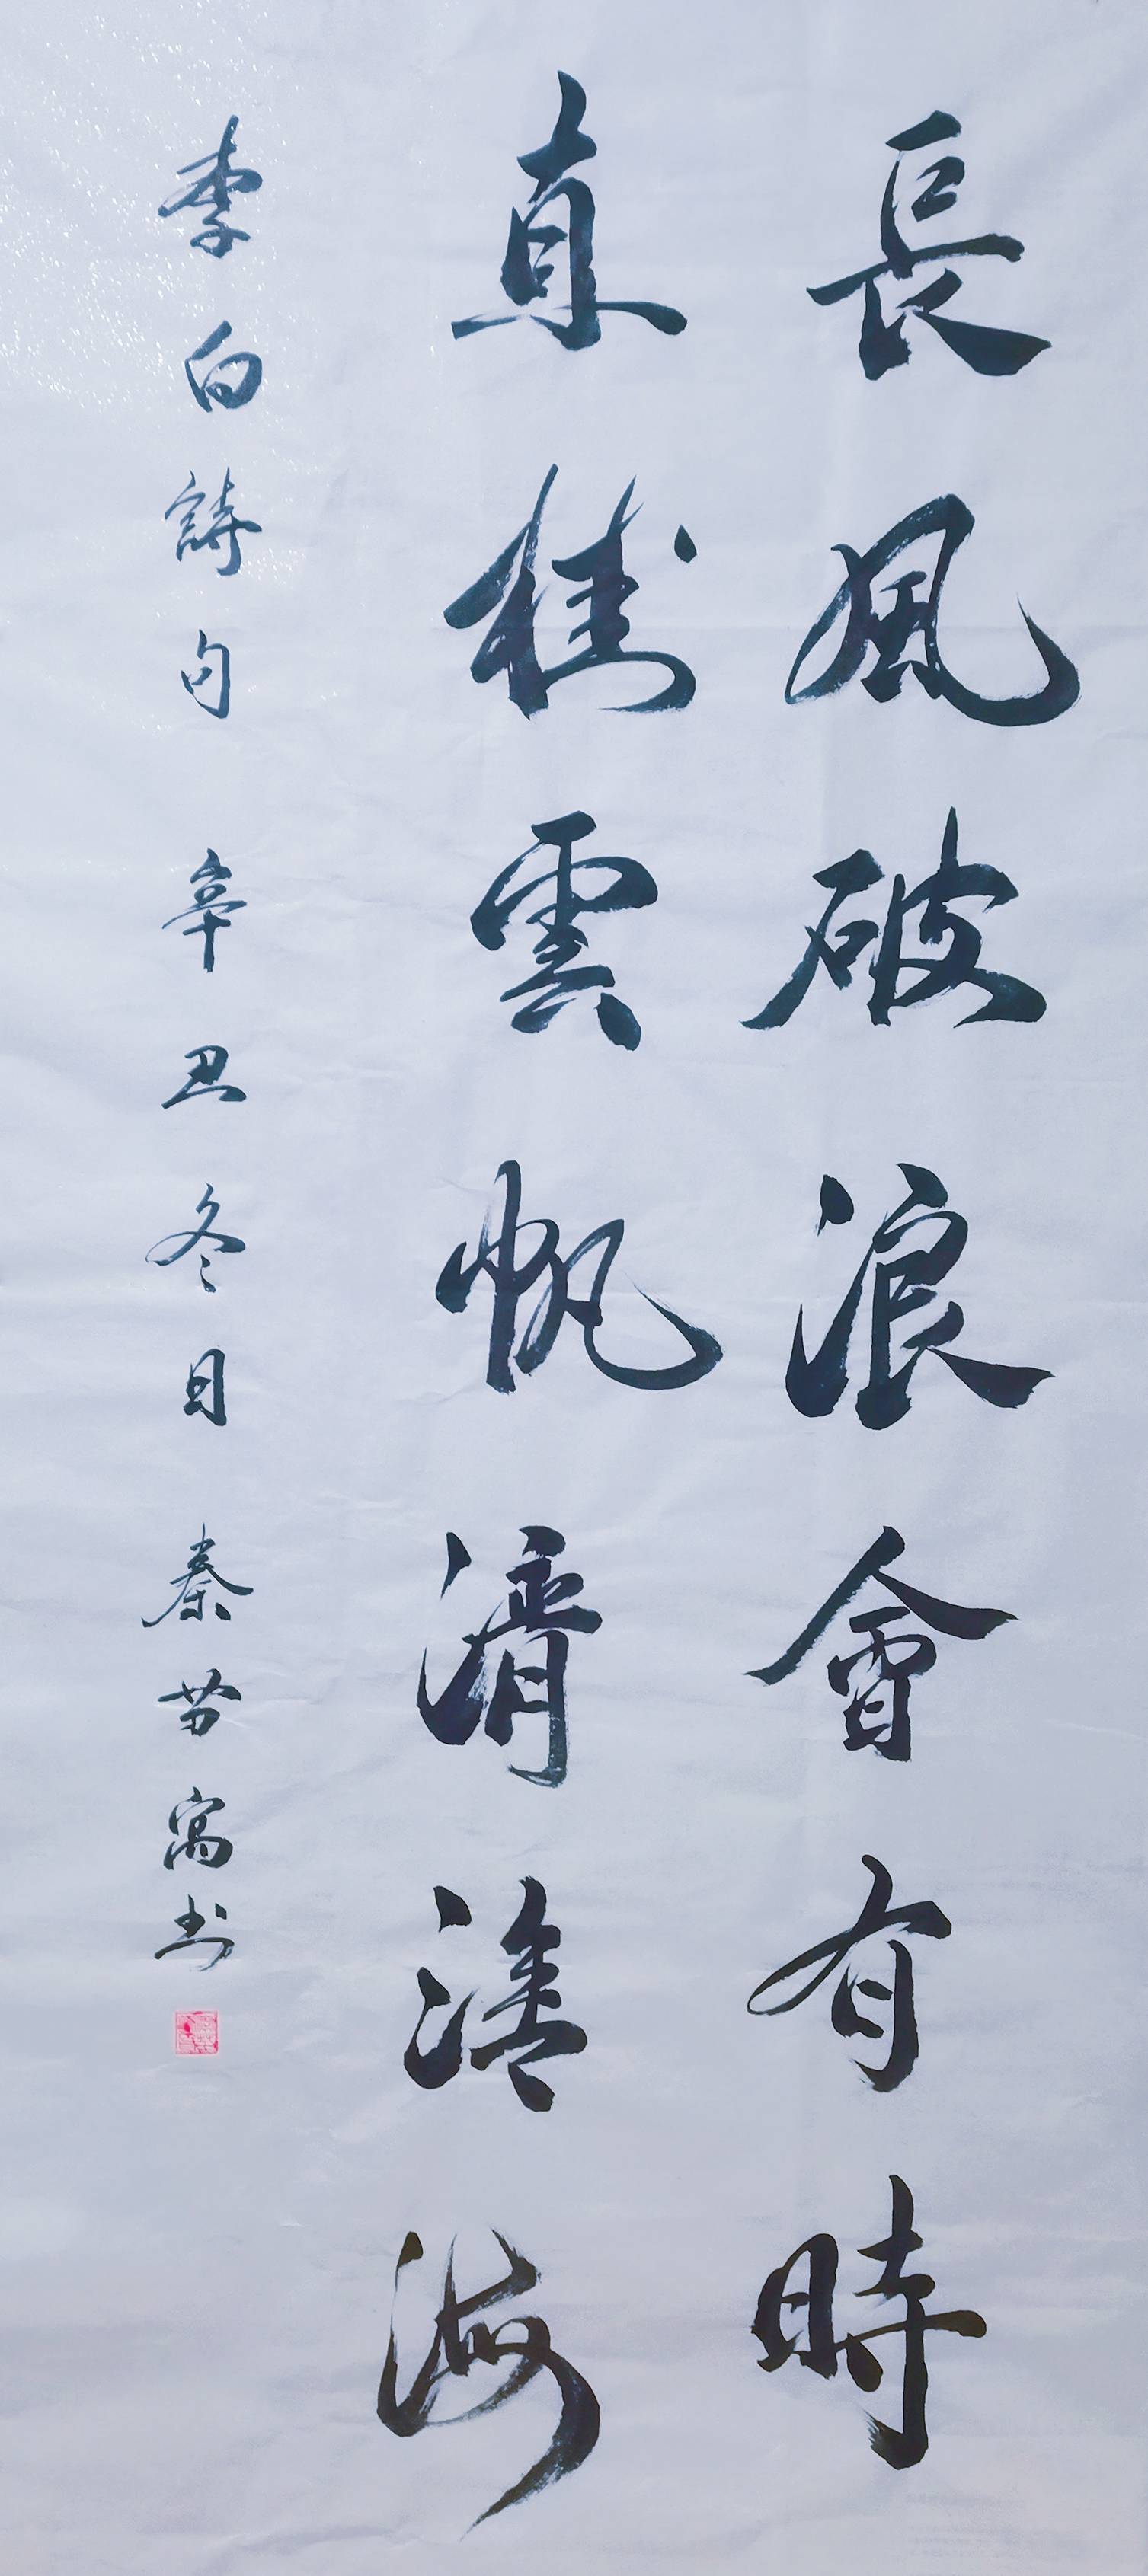 長風破浪會有時
直掛雲帆濟滄海
李白詩句 辛丑冬日 秦芳寓书